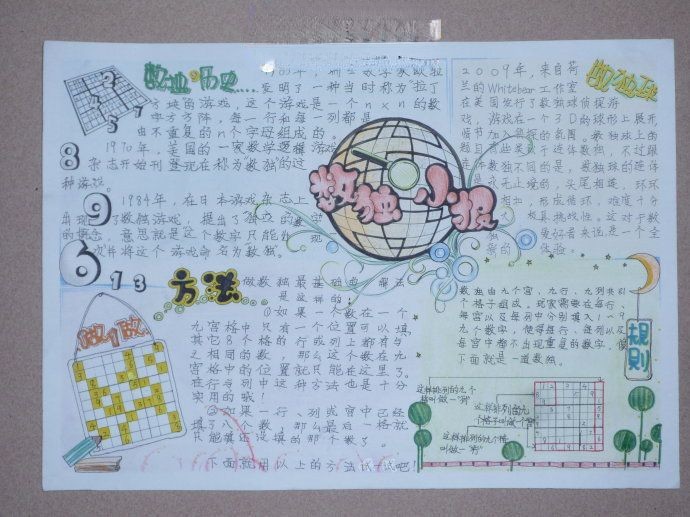 数独の历史……
发明了一种当时称为"拉丁
方块的游戏,这个游戏是一个n×n的数
字方方阵,每一行和每一列都是
由不重复的n个字母组成的。
1970年,美国的一家数学逻辑游戏
杂志开始刊登现在称为"数独"的这
种游戏。
1984年,在日本游戏杂志上
出现了数独游戏
的概念,意思就是这个数字只能
将这个游戏命名为数独。
8
9
6 7 1 3
数独小报
数独球
2009年,来自荷
兰的Whitebear工作室
在美国发行了数独球侦探游
戏,游戏在一个3D的球形上展开,
情节加入悬疑的氛围。数独球上的
题目有些类似于连体数独,不过跟
连体数独不同的是,数独球的连体
是永无上境的,头尾相连,环环
相扣,形成循环,难度十分
极具挑战性。这对于数
独爱好者来说是一个全
新的体验。
方法
做数独最基础的解法
是这样的:
①如果一个数在一个
九宫格中只有一个位置可以填,
其它8个格的行或列上都有与
之相同的数,那么这个数在九
宫格中的位置就只能在这里了。
在行与列中这种方法也是十分
实用的哦!
②如果一行、列或宫中已经
填了八个数,那么最后一格就
只能填还没填的那个数了。
下面就用以上的方法试一试吧!
做1做
规则
数独由九个宫、九行、九列共81
个格子组成。玩家需要在每行、
每宫以及每列中分别填入1~9
九个数字,使得每行、每列以及
每宫中都不出现重复的数字,
下面就是一道数独。
这样排列的九个
格叫做一"列"
这样排列的九
个格子叫做一个"宫"
这样排列的九个格
叫做一"行"